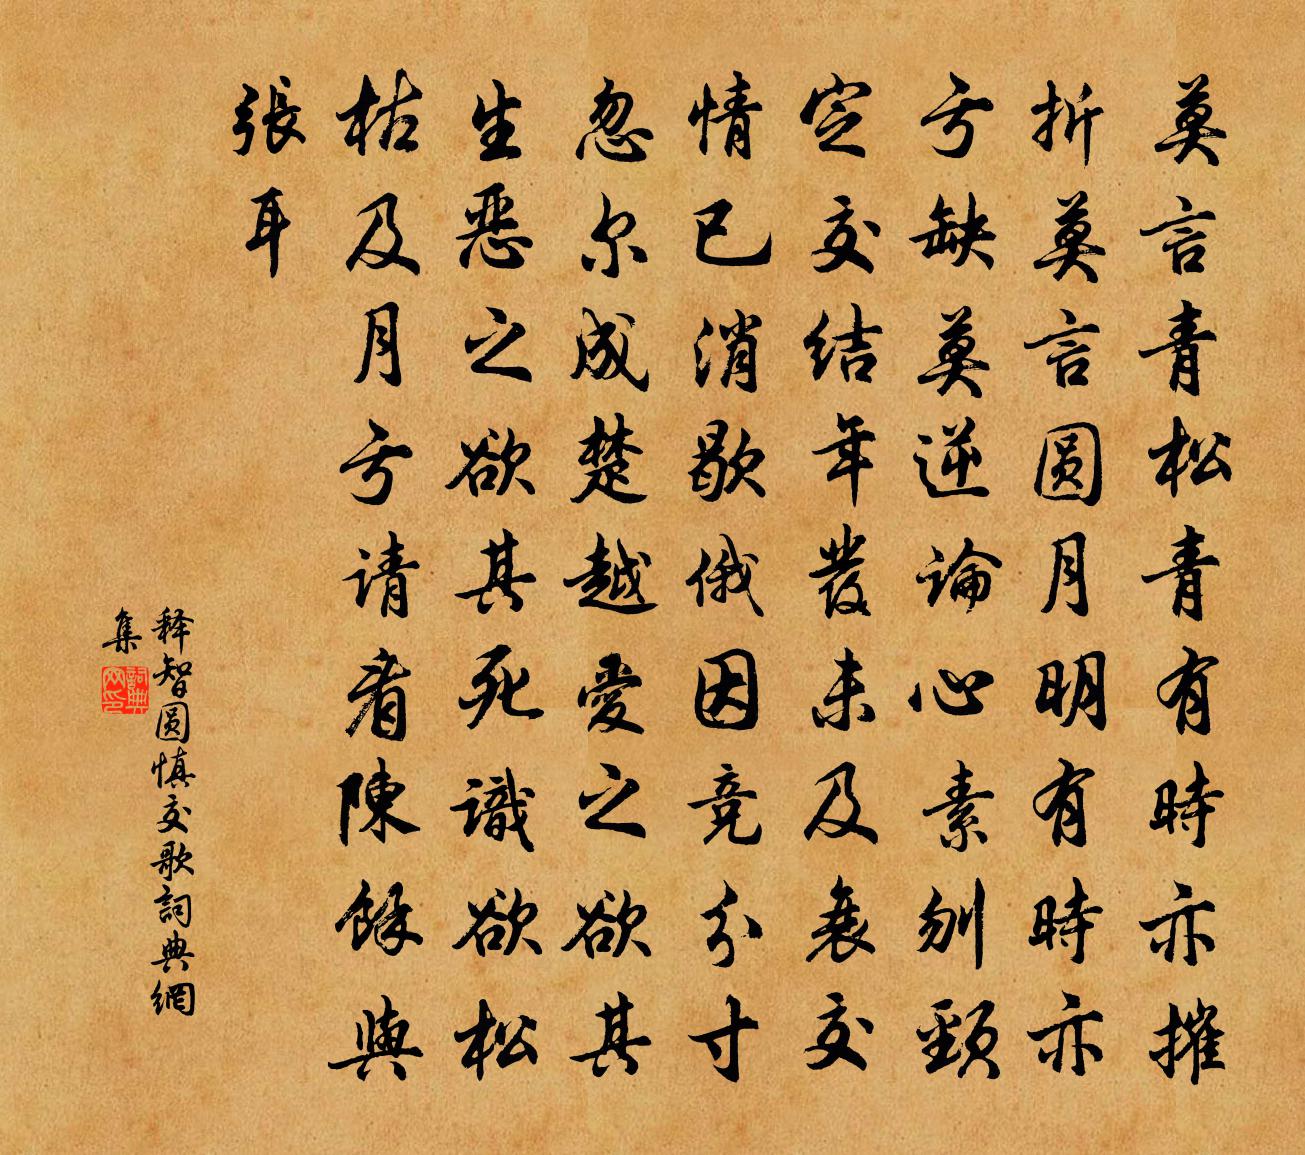 莫言青松青有時亦摧
折莫言圆月明有時亦
亏缺莫逆論心素刎頸
定交结年發未及衰交
情已消歇俄因竞分寸
忽尔成楚越愛之欲其
生惡之欲其死識欲松
枯及月亏请看陳餘與
張耳
释智圆慎交歌詞典網
集
詞典网印